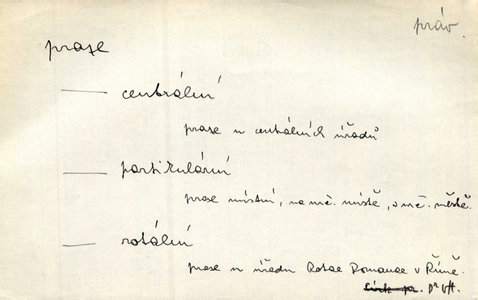 práv.
praxe
— centrální
praxe u centrálních úřadů
— partikulární
praxe místní, na urč. místě, v urč. městě.
— rotální
praxe u úřadu Rotae Romanae v Římě.
Dr VH.